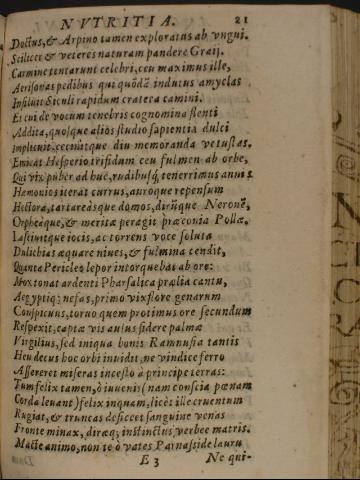 NVTRITIA. 21
Doctus, & Arpino tamen exploratus ab vngui.
Scilicet & veteres naturam pandere Graij.
Carmine tentarunt celebri, ceu maximus ille,
Aerisonas pedibus qui quōdā indutus amyclas
Insiluit Siculi rapidum cratera camini.
Et cui de vocum tenebris cognomina flenti
Addita, quosque alios studio sapientia dulci
Implicuit, cecinitque diu memoranda vetustas.
Emicat Hesperio trifidum ceu fulmen ab orbe,
Qui vix puber adhuc, rudibusq́; tenerrimus annis
Hæmonios iterat currus, auroque repensum
Hectora, tartareasque domos, dirũque Neronē,
Orpheaque, & meritæ peragit præconia Pollæ.
Lasciuitque iocis, ac torrens voce soluta
Dulichias æquare niues, & fulmina tendit,
Quanta Pericleo lepor intorquebat ab ore:
Mox tonat ardenti Pharsalica prælia cantu,
Aegyptiq́; nefas, primo vix flore genarum
Conspicuus, toruo quem protinus ore secundum
Respexit, captæ vis ausus sidere palmæ
Virgilius, sed iniqua bonis Ramnusia tantis
Heu decus hoc orbi inuidit, ne vindice ferro
Assereret miseras incesto à principe terras:
Tum felix tamen, ô iuuenis (nam conscia pœnam
Corda leuant) felix inquam, licèt ille cruentum
Rugiat, & truncas desiccet sanguine venas
Fronte minax, diræq; instinctus verbere matris.
Macte animo, non te ô vates Parnasside lauru
E 3 Ne qui-